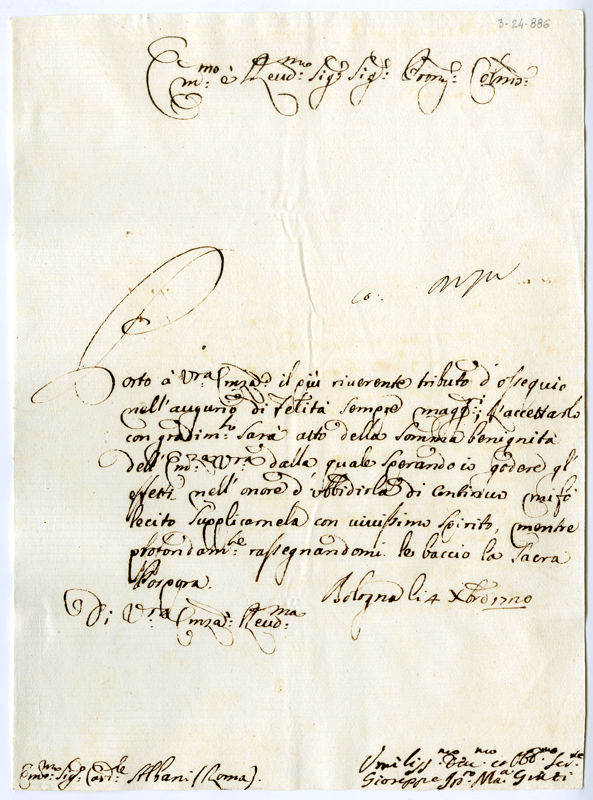 3-24-886
Em:mo è Reud:mo Sig:r Sig:r Pron: Colmo:
Porto à Vra Emza: il più riverente tributo d'ossequio
nell'augurio di felità sempre magg:i; l'accettarlo
con gradim:to sarà atto della somma benignità
dell'Emza Vra dalla quale sperando io godere gl'
effetti nell'onore d'ubbidirla di continuo mi fò
lecito supplicarnela con vivissimo spirito, mentre
profondam:te rassegnandomi le baccio la Sacra
Porpora.
Bologna li 4 Xbre 1720
Di V:ra Emza: Reud:ma
Em:mo Sig: Card:le Albani (Roma).
Umiliss:mo Deu:mo ed Obb:mo Ser:re
Gioseppe Ma: